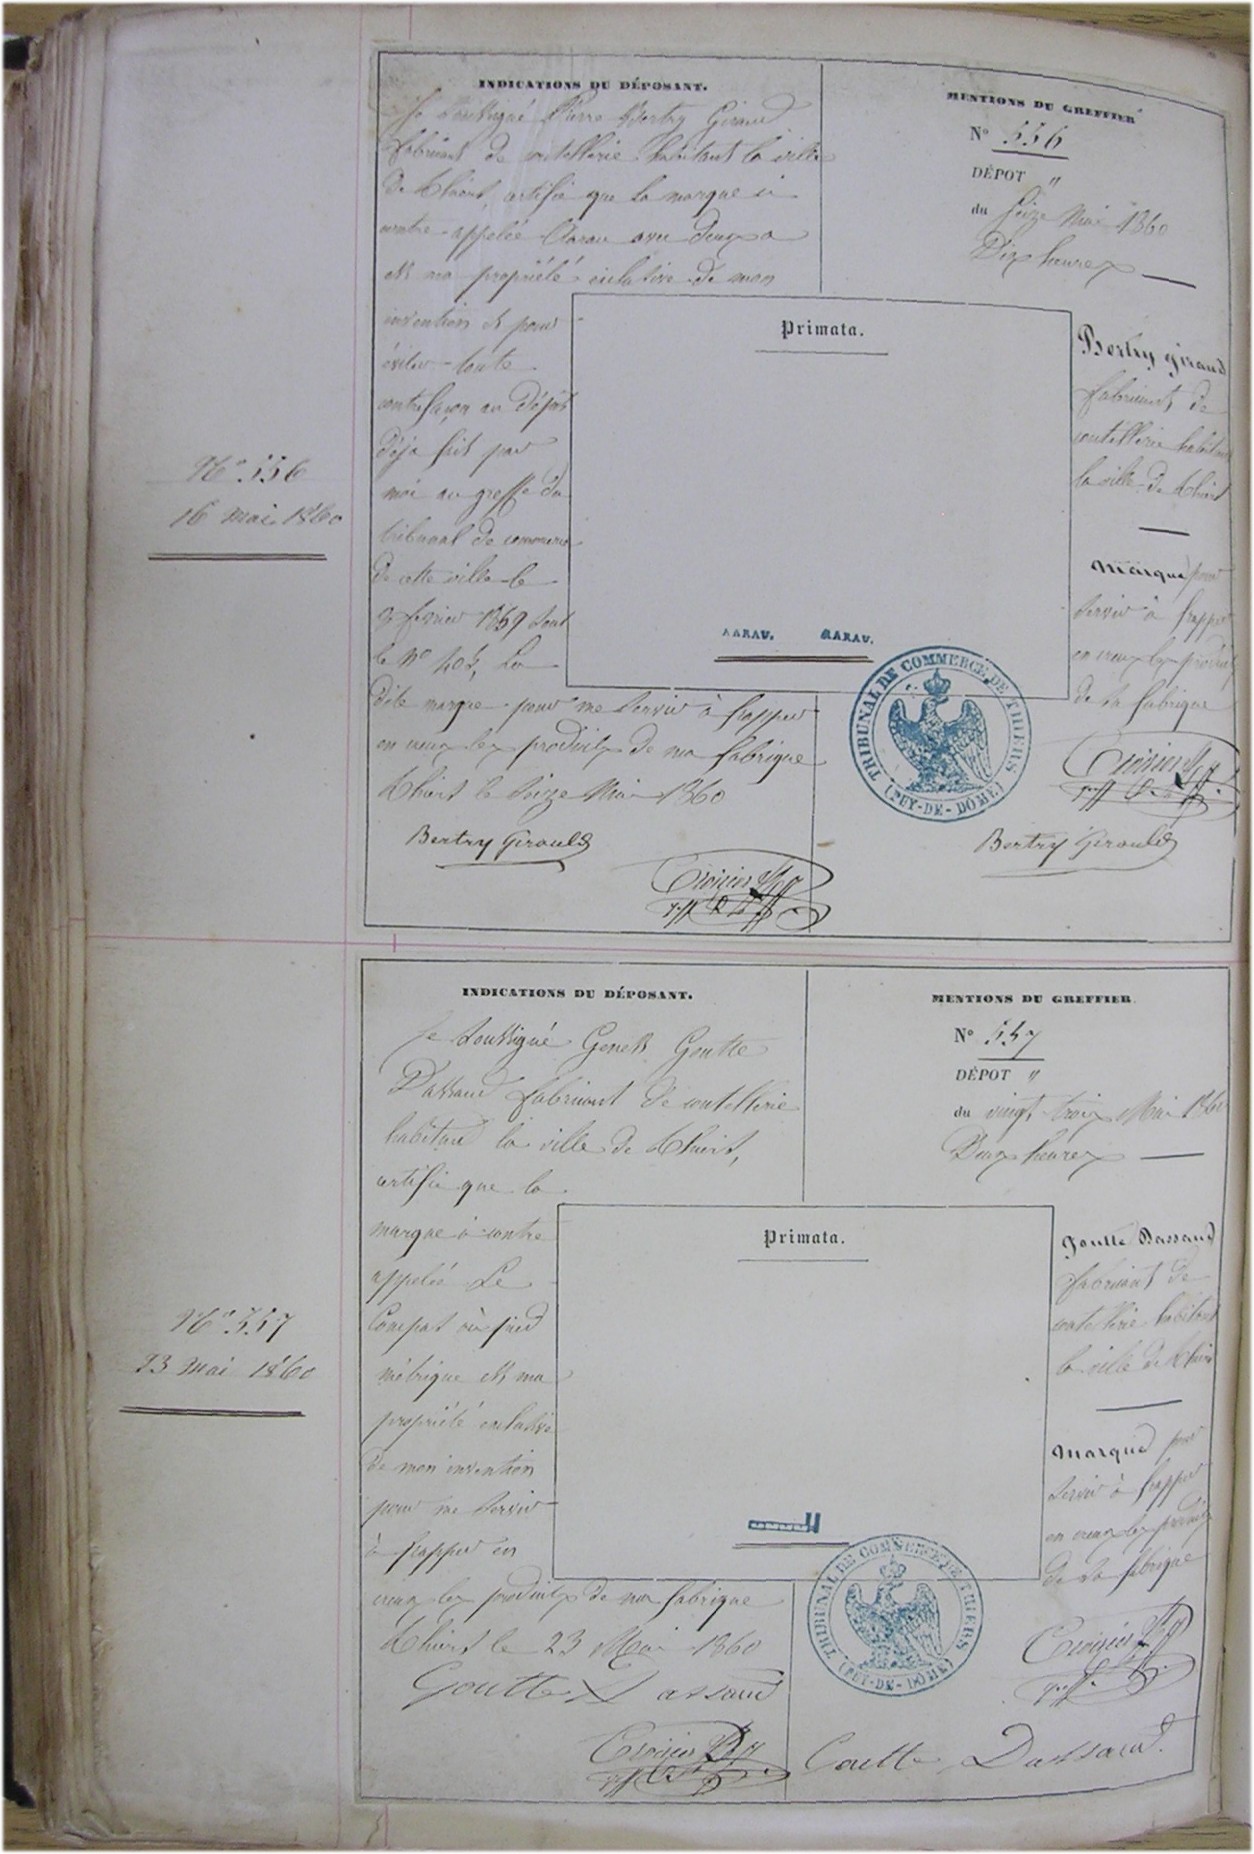 INDICATIONS DU DÉPOSANT.
Je soussigné Pierre Bertry Giraud
fabricant de coutellerie habitant la ville
de Thiers, certifie que la marque ci
contre appelée Aarau avec deux a
est ma propriété exclusive de mon
invention et pour
éviter toute
contrefaçon au dépôt
déjà fait par
moi au greffe du
tribunal de commerce
de cette ville le
février 1859 sous
le No La
dite marque pour me servir à frapper
en creux les produits de ma fabrique
Thiers le seize Mai 1860
Bertry Girauld
MENTIONS DU GREFFIER
N° 556
DÉPOT "
du seize Mai 1860
Dix heures
Primata.
AARAU. AARAU.
Bertry giraud
fabricant de
coutellerie habitant
la ville de Thiers
Marque pour
servir à frapper
en creux les produits
de sa fabrique
TRIBUNAL DE COMMERCE DE THIERS
(PUY-DE-DÔME)
Bertry Girauld
No 556
16 mai 1860
INDICATIONS DU DÉPOSANT.
Je soussigné Genest Goutte
Dassaud fabricant de coutellerie
habitant la ville de Thiers,
certifie que la
marque ci contre
appelée Le
Compas ou pied
métrique est ma
propriété exclusive
de mon invention
pour me servir
à frapper en
creux les produits de ma fabrique
Thiers le 23 Mai 1860
Goutte Dassaud
MENTIONS DU GREFFIER
N° 557
DÉPOT "
du vingt trois Mai 1860
Deux heures
Primata.
goutte Dassaud
fabricant de
coutellerie habitant
la ville de Thiers
Marque pour
servir à frapper
en creux les produits
de sa fabrique
TRIBUNAL DE COMMERCE DE THIERS
(PUY-DE-DÔME)
Goutte Dassaud
No 557
23 mai 1860